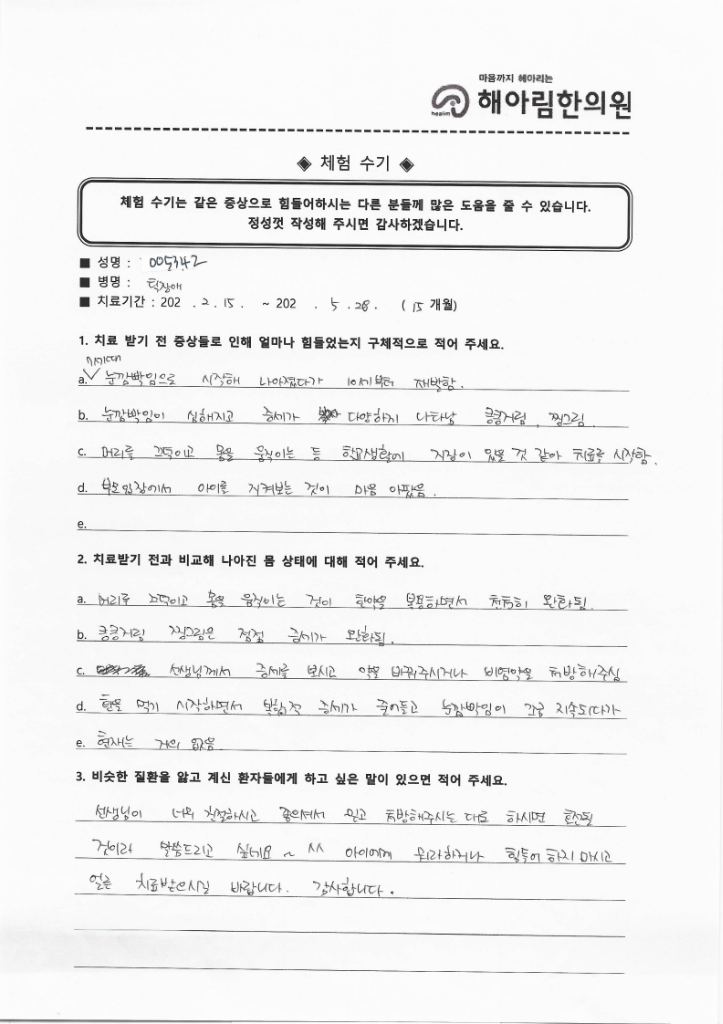 마음까지 헤아리는
healim 해아림한의원
◈ 체험 수기 ◈
체험 수기는 같은 증상으로 힘들어하시는 다른 분들께 많은 도움을 줄 수 있습니다.
정성껏 작성해 주시면 감사하겠습니다.
■ 성명 : 005342
■ 병명 : 틱장애
■ 치료기간 : 202 . 2 . 15 . ~ 202 . 5 . 28 . ( 15 개월)
1. 치료 받기 전 증상들로 인해 얼마나 힘들었는지 구체적으로 적어 주세요.
a. 눈깜빡임으로 시작해 나아졌다가 10세부터 재발함.
b. 눈깜빡임이 심해지고 증세가 다양하지 나타남 킁킁거림, 찡그림
c. 머리를 끄덕이고 몸을 움직이는 등 학교생활에 지장이 있을 것 같아 치료를 시작함.
d. 부모입장에서 아이를 지켜보는 것이 마음 아팠음.
e.
2. 치료받기 전과 비교해 나아진 몸 상태에 대해 적어 주세요.
a. 머리를 끄덕이고 몸을 움직이는 것이 한약을 복용하면서 천천히 완화됨.
b. 킁킁거림 찡그림은 점점 증세가 완화됨.
c. 선생님께서 증세를 보시고 약을 바꿔주시거나 비염약을 처방해주심
d. 약을 먹기 시작하면서 증세가 줄어들고 눈깜빡임이 조금 지속되다가
e. 현재는 거의 없음.
3. 비슷한 질환을 앓고 계신 환자들에게 하고 싶은 말이 있으면 적어 주세요.
선생님이 너무 친절하시고 좋으셔서 믿고 처방해주시는 대로 하시면 호전될
것이라 말씀드리고 싶네요 ~ ^^ 아이에게 뭐라하거나 힘들어 하지 마시고
얼른 치료받으시길 바랍니다. 감사합니다.